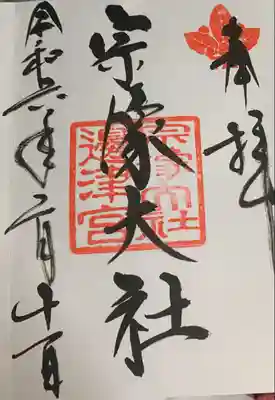 奉拝
宗像大社
宗像大社
邊津宮
令和六年二月十一日